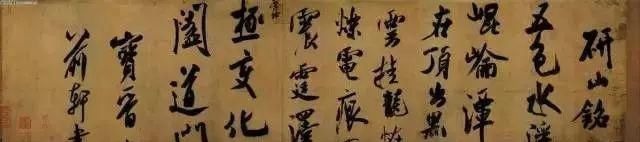 研山銘
五色水浮
崐崘潭
在頂出黑
雲挂龍怪
爍電痕
震霆澤
極變化
闔道門
寶晉
前軒書